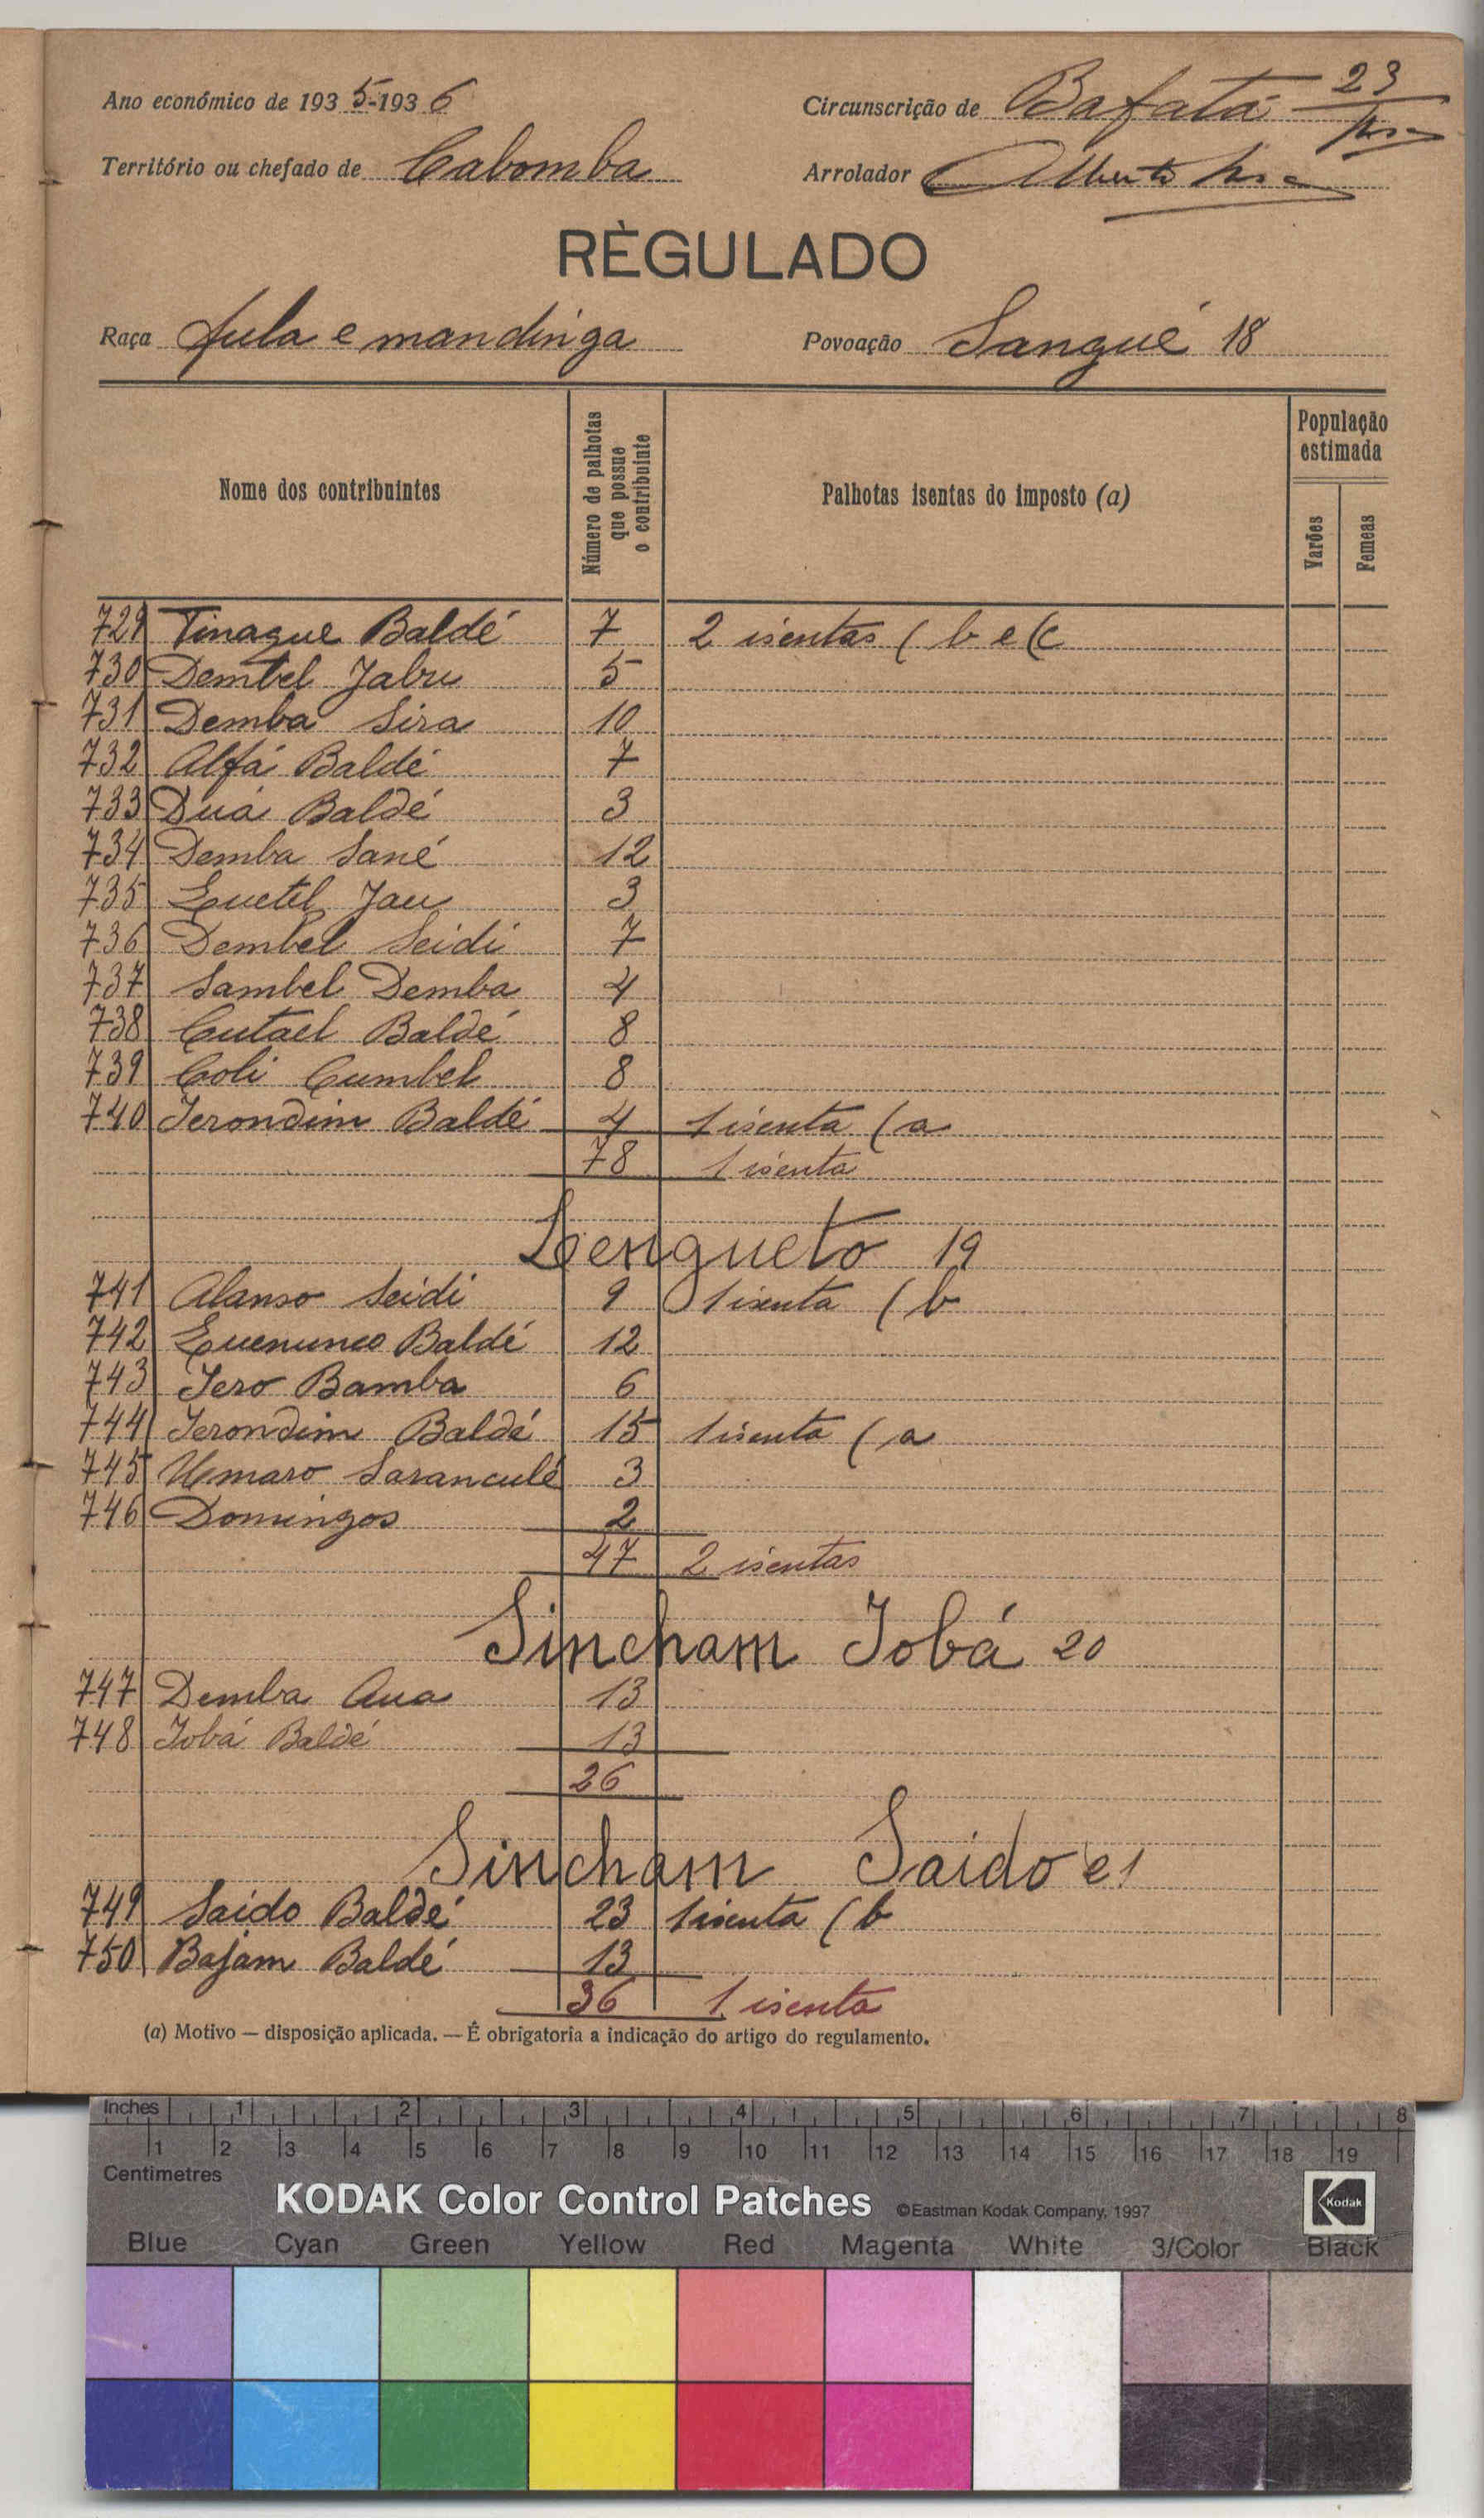 Ano económico de 1935-1936
Circunscrição de Bafatá 23
Território ou chefado de Cabomba
Arrolador Alberto
RÈGULADO
Raça fula e mandinga
Povoação Sangué 18
Nome dos contribuintes
Número de palhotas que possue o contribuinte
Palhotas isentas do imposto (a)
População estimada
Varões
Femeas
729 Tinague Baldé 7 2 isentas ( b e (c
730 Dembel Jabu 5
731 Demba Sira 10
732 Alfá Baldé 7
733 Duá Baldé 3
734 Demba Sané 12
735 Quetel Jau 3
736 Dembel Seidi 7
737 Sambel Demba 4
738 Cutael Baldé 8
739 Coli Cumbel 8
740 Jerondim Baldé 4 1 isenta ( a
78 1 isenta
Lengueto 19
741 Alanso Seidi 9 1 isenta ( b
742 Baldé 12
743 Jero Bamba 6
744 Jerondim Baldé 15 1 isenta ( a
745 Umaro Saranculé 3
746 Domingos 2
47 2 isentas
Sincham Jobá 20
747 Demba Aua 13
748 Jobá Baldé 13
26
Sincham Saido 21
749 Saido Baldé 23 1 isenta ( b
750 Bajam Baldé 13
36 1 isenta
(a) Motivo — disposição aplicada. — É obrigatoria a indicação do artigo do regulamento.
Inches 1 2 3 4 5 6 7 8
1 2 3 4 5 6 7 8 9 10 11 12 13 14 15 16 17 18 19
Centimetres
KODAK Color Control Patches ©Eastman Kodak Company, 1997 Kodak
Blue Cyan Green Yellow Red Magenta White 3/Color Black